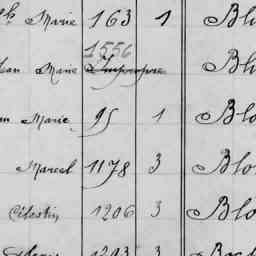 Marie 163 1 Bl
1556
Jean Marie Impropre Bl
Marie 95 1 Blo
Marcel 1178 3 Blo
Célestin 1206 3 Blo
1293 3